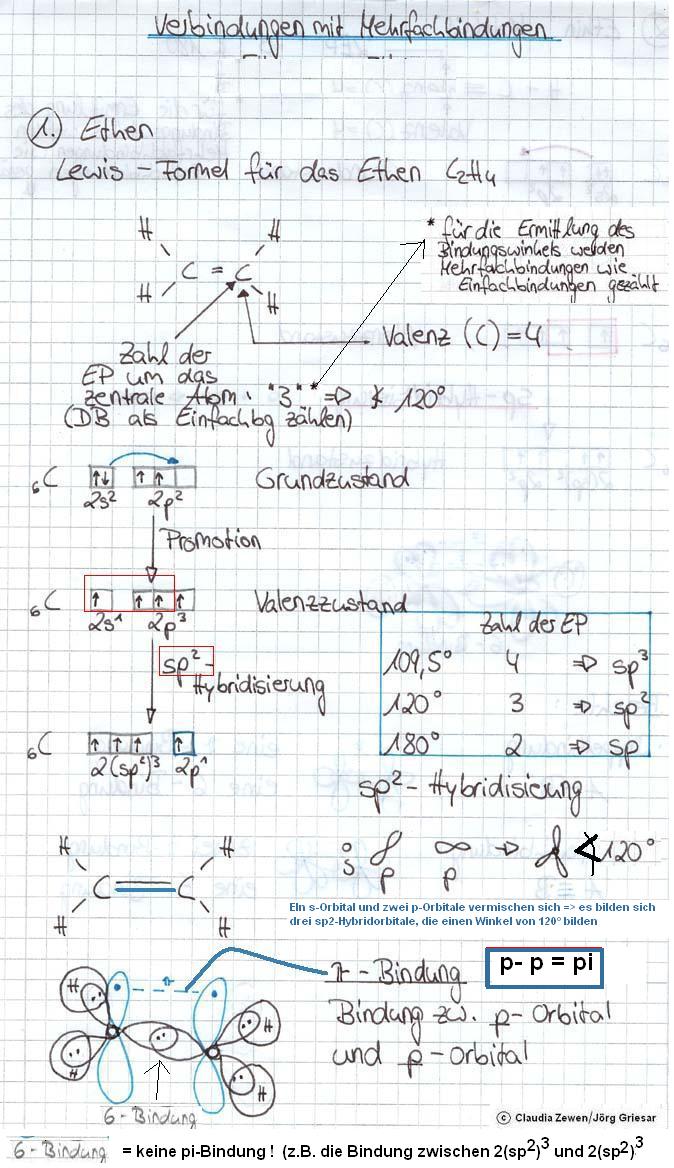 Verbindungen mit Mehrfachbindungen
1. Ethen
Lewis - Formel für das Ethen C₂H₄
H H
C = C
H H
* für die Ermittlung des
Bindungswinkels werden
Mehrfachbindungen wie
Einfachbindungen gezählt
Valenz (C) = 4
Zahl der
EP um das
zentrale Atom: "3" * ⇒ ∢ 120°
(DB als Einfachbg zählen)
₆C ↑↓ ↑ ↑ Grundzustand
2s² 2p²
Promotion
₆C ↑ ↑ ↑ ↑ Valenzzustand
2s¹ 2p³
sp²-
Hybridisierung
Zahl der EP
109,5° 4 ⇒ sp³
120° 3 ⇒ sp²
180° 2 ⇒ sp
₆C ↑ ↑ ↑ ↑
2(sp²)³ 2p¹
sp² - Hybridisierung
s p p ⇒ ∢ 120°
H H
C = C
H H
EIn s-Orbital und zwei p-Orbitale vermischen sich => es bilden sich
drei sp2-Hybridorbitale, die einen Winkel von 120° bilden
π - Bindung
p- p = pi
Bindung zw. p - Orbital
und p - Orbital
H H
π
H H
6 - Bindung
© Claudia Zewen/Jörg Griesar
6 - Bindung = keine pi-Bindung ! (z.B. die Bindung zwischen 2(sp²)³ und 2(sp²)³